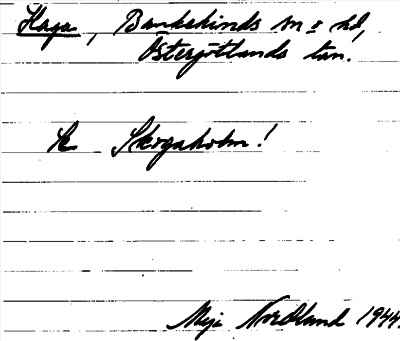 Haga, Bankekinds sn o hd,
Östergötlands län.
Se Skogaholm!
Maja Nordlund 1944.